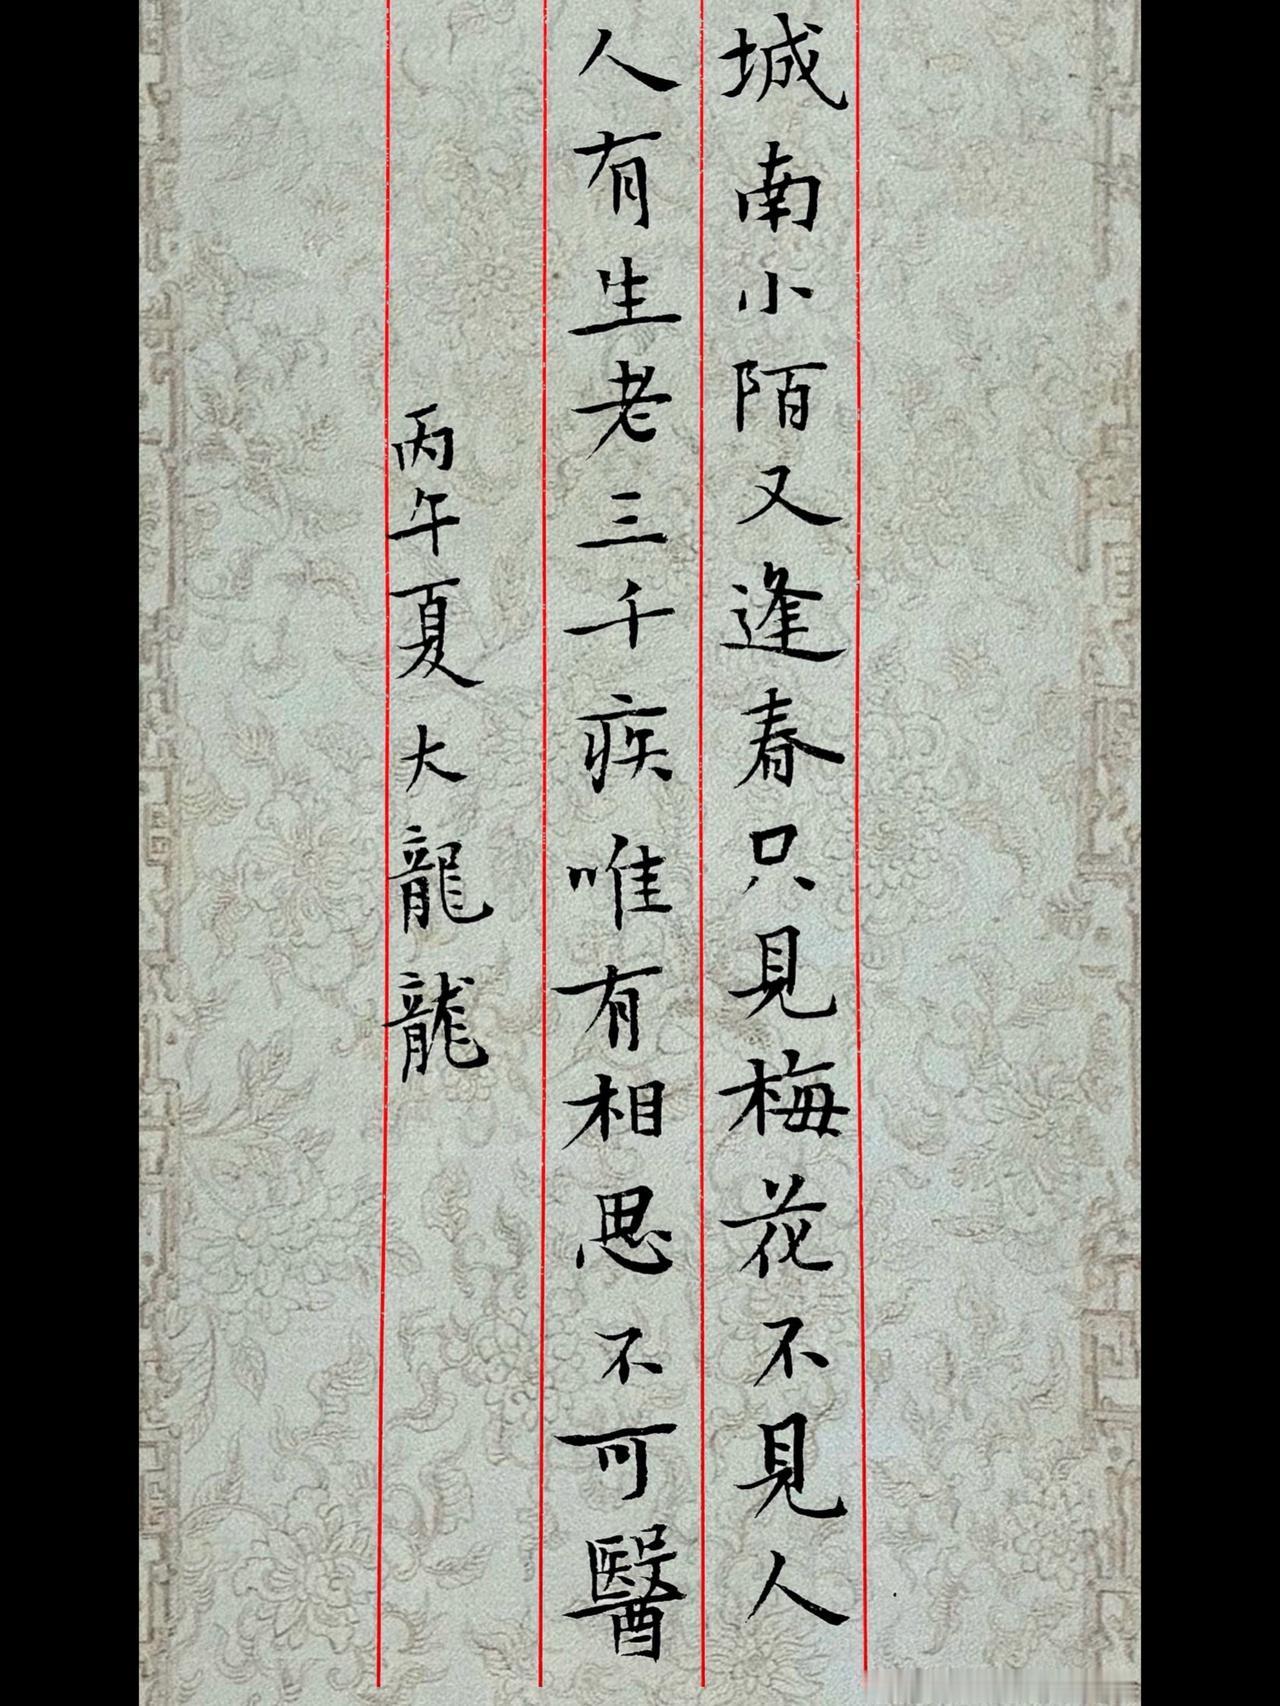 城南小陌又逢春只見梅花不見人
人有生老三千疾唯有相思不可醫
丙午夏大龍龍